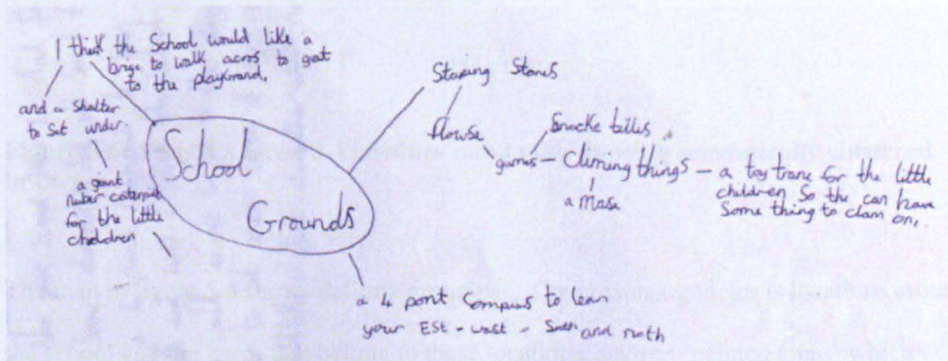 I think the School would like a
brige to walk acros to got
to the playground.
and a Shelter
to Sit under
School
Grounds
a gant
nuber
for the little
children
Staping Stones
flowse
Snacke
games - climing things - a toy trane for the little
children So the can have
a mase
Some thing to clam on.
a 4 pont compus to lean
your ESt - wast - Sath and noth